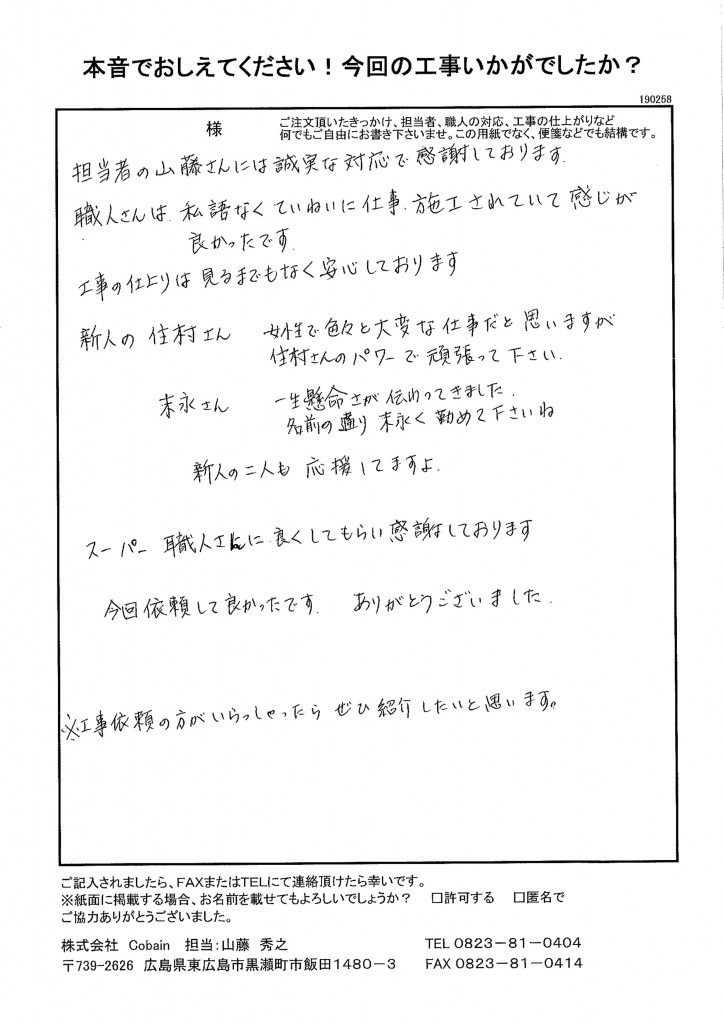 本音でおしえてください！今回の工事いかがでしたか？
190258
様
ご注文頂いたきっかけ、担当者、職人の対応、工事の仕上がりなど
何でもご自由にお書き下さいませ。この用紙でなく、便箋などでも結構です。
担当者の山藤さんには誠実な対応で感謝しております.
職人さんは、私語なくていねいに仕事、施工されていて感じが
良かったです.
工事の仕上りは見るまでもなく安心しております
新人の 住村さん 女性で色々と大変な仕事だと思いますが
住村さんのパワーで頑張って下さい.
末永さん 一生懸命さが伝わってきました.
名前の通り末永く勤めて下さいね
新人の二人も応援してますよ.
スーパー職人さんに良くしてもらい感謝しております
今回依頼して良かったです. ありがとうございました.
※工事依頼の方がいらっしゃったらぜひ紹介したいと思います。
ご記入されましたら、FAXまたはTELにて連絡頂けたら幸いです。
※紙面に掲載する場合、お名前を載せてもよろしいでしょうか？ □許可する □匿名で
ご協力ありがとうございました。
株式会社 Cobain 担当：山藤 秀之 TEL 0823－81－0404
〒739-2626 広島県東広島市黒瀬町市飯田1480－3 FAX 0823－81－0414